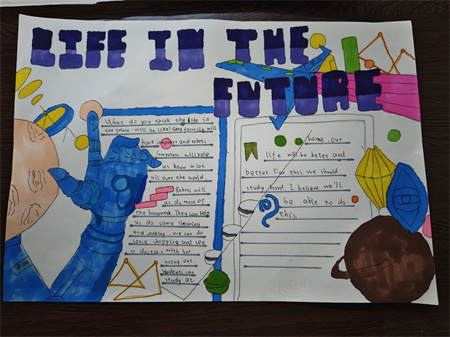 LIFE IN THE
FUTURE
What do you think the life in
the future will be like? Every family will
have computer and robots.
Computers will help
us know a lot
all over the world.
Robots will
us do most of
the housework. They can help
us do some cleaning
and cooking. We can do
some shopping and see
a doctor with not
going out
Students can
study at
home. Our
life will be better and
better. For this, we should
study hard. I believe we'll
be able to do
this.